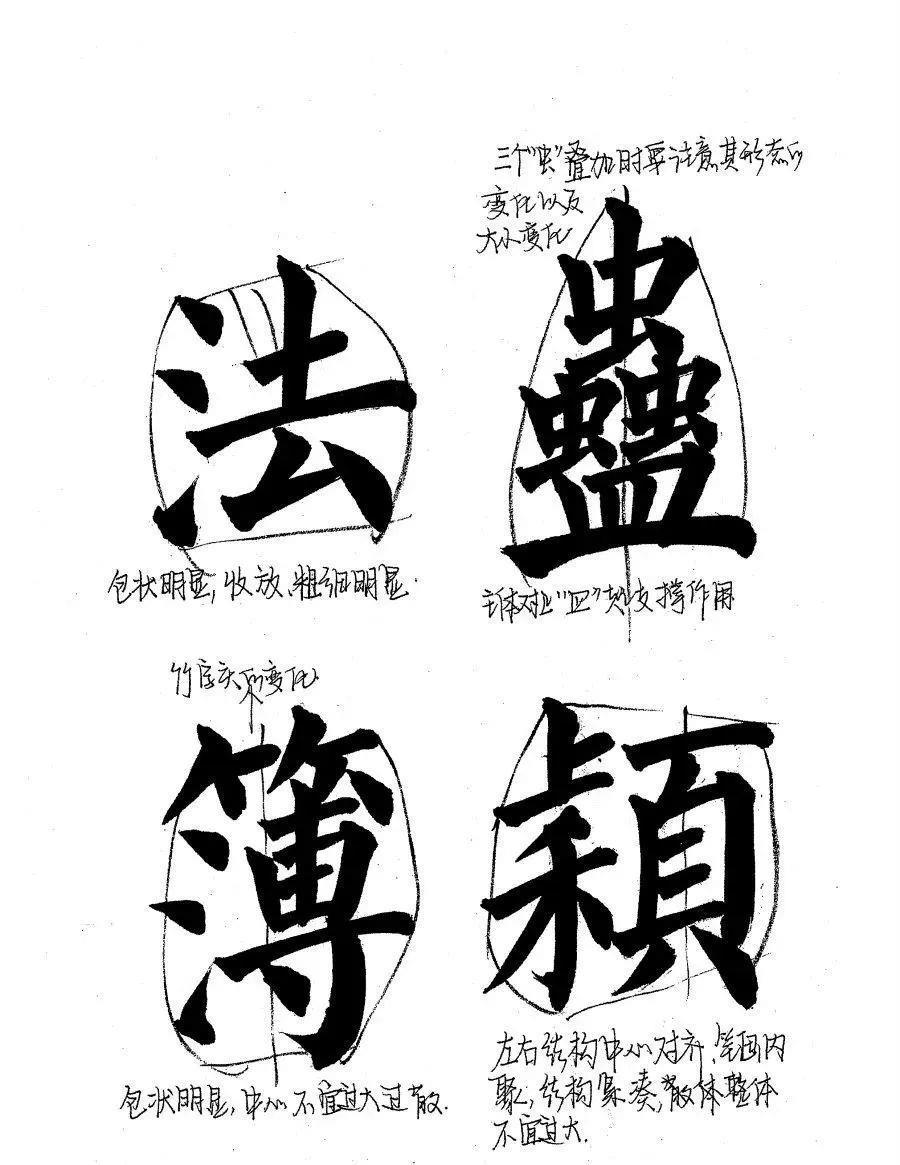 三个"虫"叠加时要注意其形态的
变化以及
大小变化
法
蠱
包状明显,收放、粗细明显.
对比"皿"支撑作用
竹字头的变化
簿
穎
包状明显,中心不宜过大过散.
左右结构中心对齐,笔画内
聚,结构紧凑,整体
不宜过大.